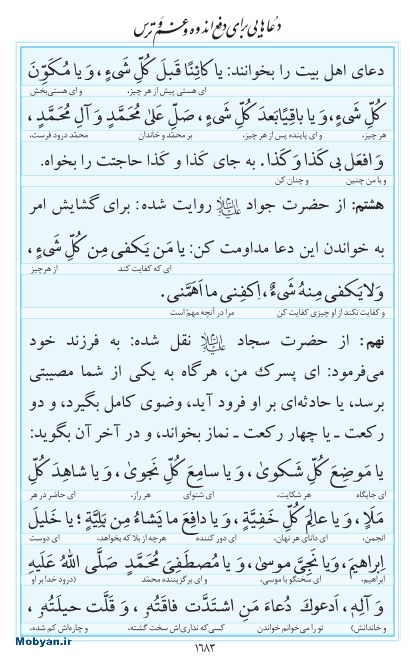 دعاهایی برای دفع اندوه و غم و ترس
دعای اهل بیت را بخوانند: یا کائِنًا قَبلَ کُلِّ شَیءٍ، وَ یا مُکَوِّنَ
ای هستی پیش از هر چیز، و ای هستی‌بخش
کُلِّ شَیءٍ، وَ یا باقِیًا بَعدَ کُلِّ شَیءٍ، صَلِّ عَلیٰ مُحَمَّدٍ وَ آلِ مُحَمَّدٍ،
هر چیز، و ای پاینده پس از هر چیز، بر محمّد و خاندان محمّد درود فرست،
وَ افعَل بی کَذا وَ کَذا. به جای کَذا و کَذا حاجتت را بخواه.
و با من چنین و چنان کن
هشتم: از حضرت جواد علیه‌السلام روایت شده: برای گشایش امر
به خواندن این دعا مداومت کن: یا مَن یَکفی مِن کُلِّ شَیءٍ،
ای که کفایت کند از هر چیز
وَ لا یَکفی مِنهُ شَیءٌ، اِکفِنی ما اَهَمَّنی.
و کفایت نکند از او چیزی کفایت کن مرا در آنچه مهمّ است
نهم: از حضرت سجاد علیه‌السلام نقل شده: به فرزند خود
می‌فرمود: ای پسرک من، هرگاه به یکی از شما مصیبتی
برسد، یا حادثه‌ای بر او فرود آید، وضوی کامل بگیرد، و دو
رکعت ـ یا چهار رکعت ـ نماز بخواند، و در آخر آن بگوید:
یا مَوضِعَ کُلِّ شَکویٰ، وَ یا سامِعَ کُلِّ نَجویٰ، وَ یا شاهِدَ کُلِّ
ای جایگاه هر شکایت، ای شنوای هر راز، ای حاضر در هر
مَلَاٍ، وَ یا عالِمَ کُلِّ خَفِیَّةٍ، وَ یا دافِعَ ما یَشاءُ مِن بَلِیَّةٍ؛ یا خَلیلَ
انجمن، ای دانای هر نهان، ای دور کننده هرچه از بلا که بخواهد، ای دوست
اِبراهیمَ، وَ یا نَجِیَّ موسیٰ، وَ یا مُصطَفِیَ مُحَمَّدٍ صَلَّی اللهُ عَلَیهِ
ابراهیم، ای سخنگو با موسی، و ای برگزیننده محمّد (درود خدا بر او
وَ آلِهِ، اَدعوکَ دُعاءَ مَنِ اشتَدَّت فاقَتُهُ، وَ قَلَّت حیلَتُهُ،
و خاندانش) تو را می‌خوانم خواندن کسی‌که نداری‌اش سخت گشته، و چاره‌اش کم شده،
۱۶۸۳
Mobyan.ir